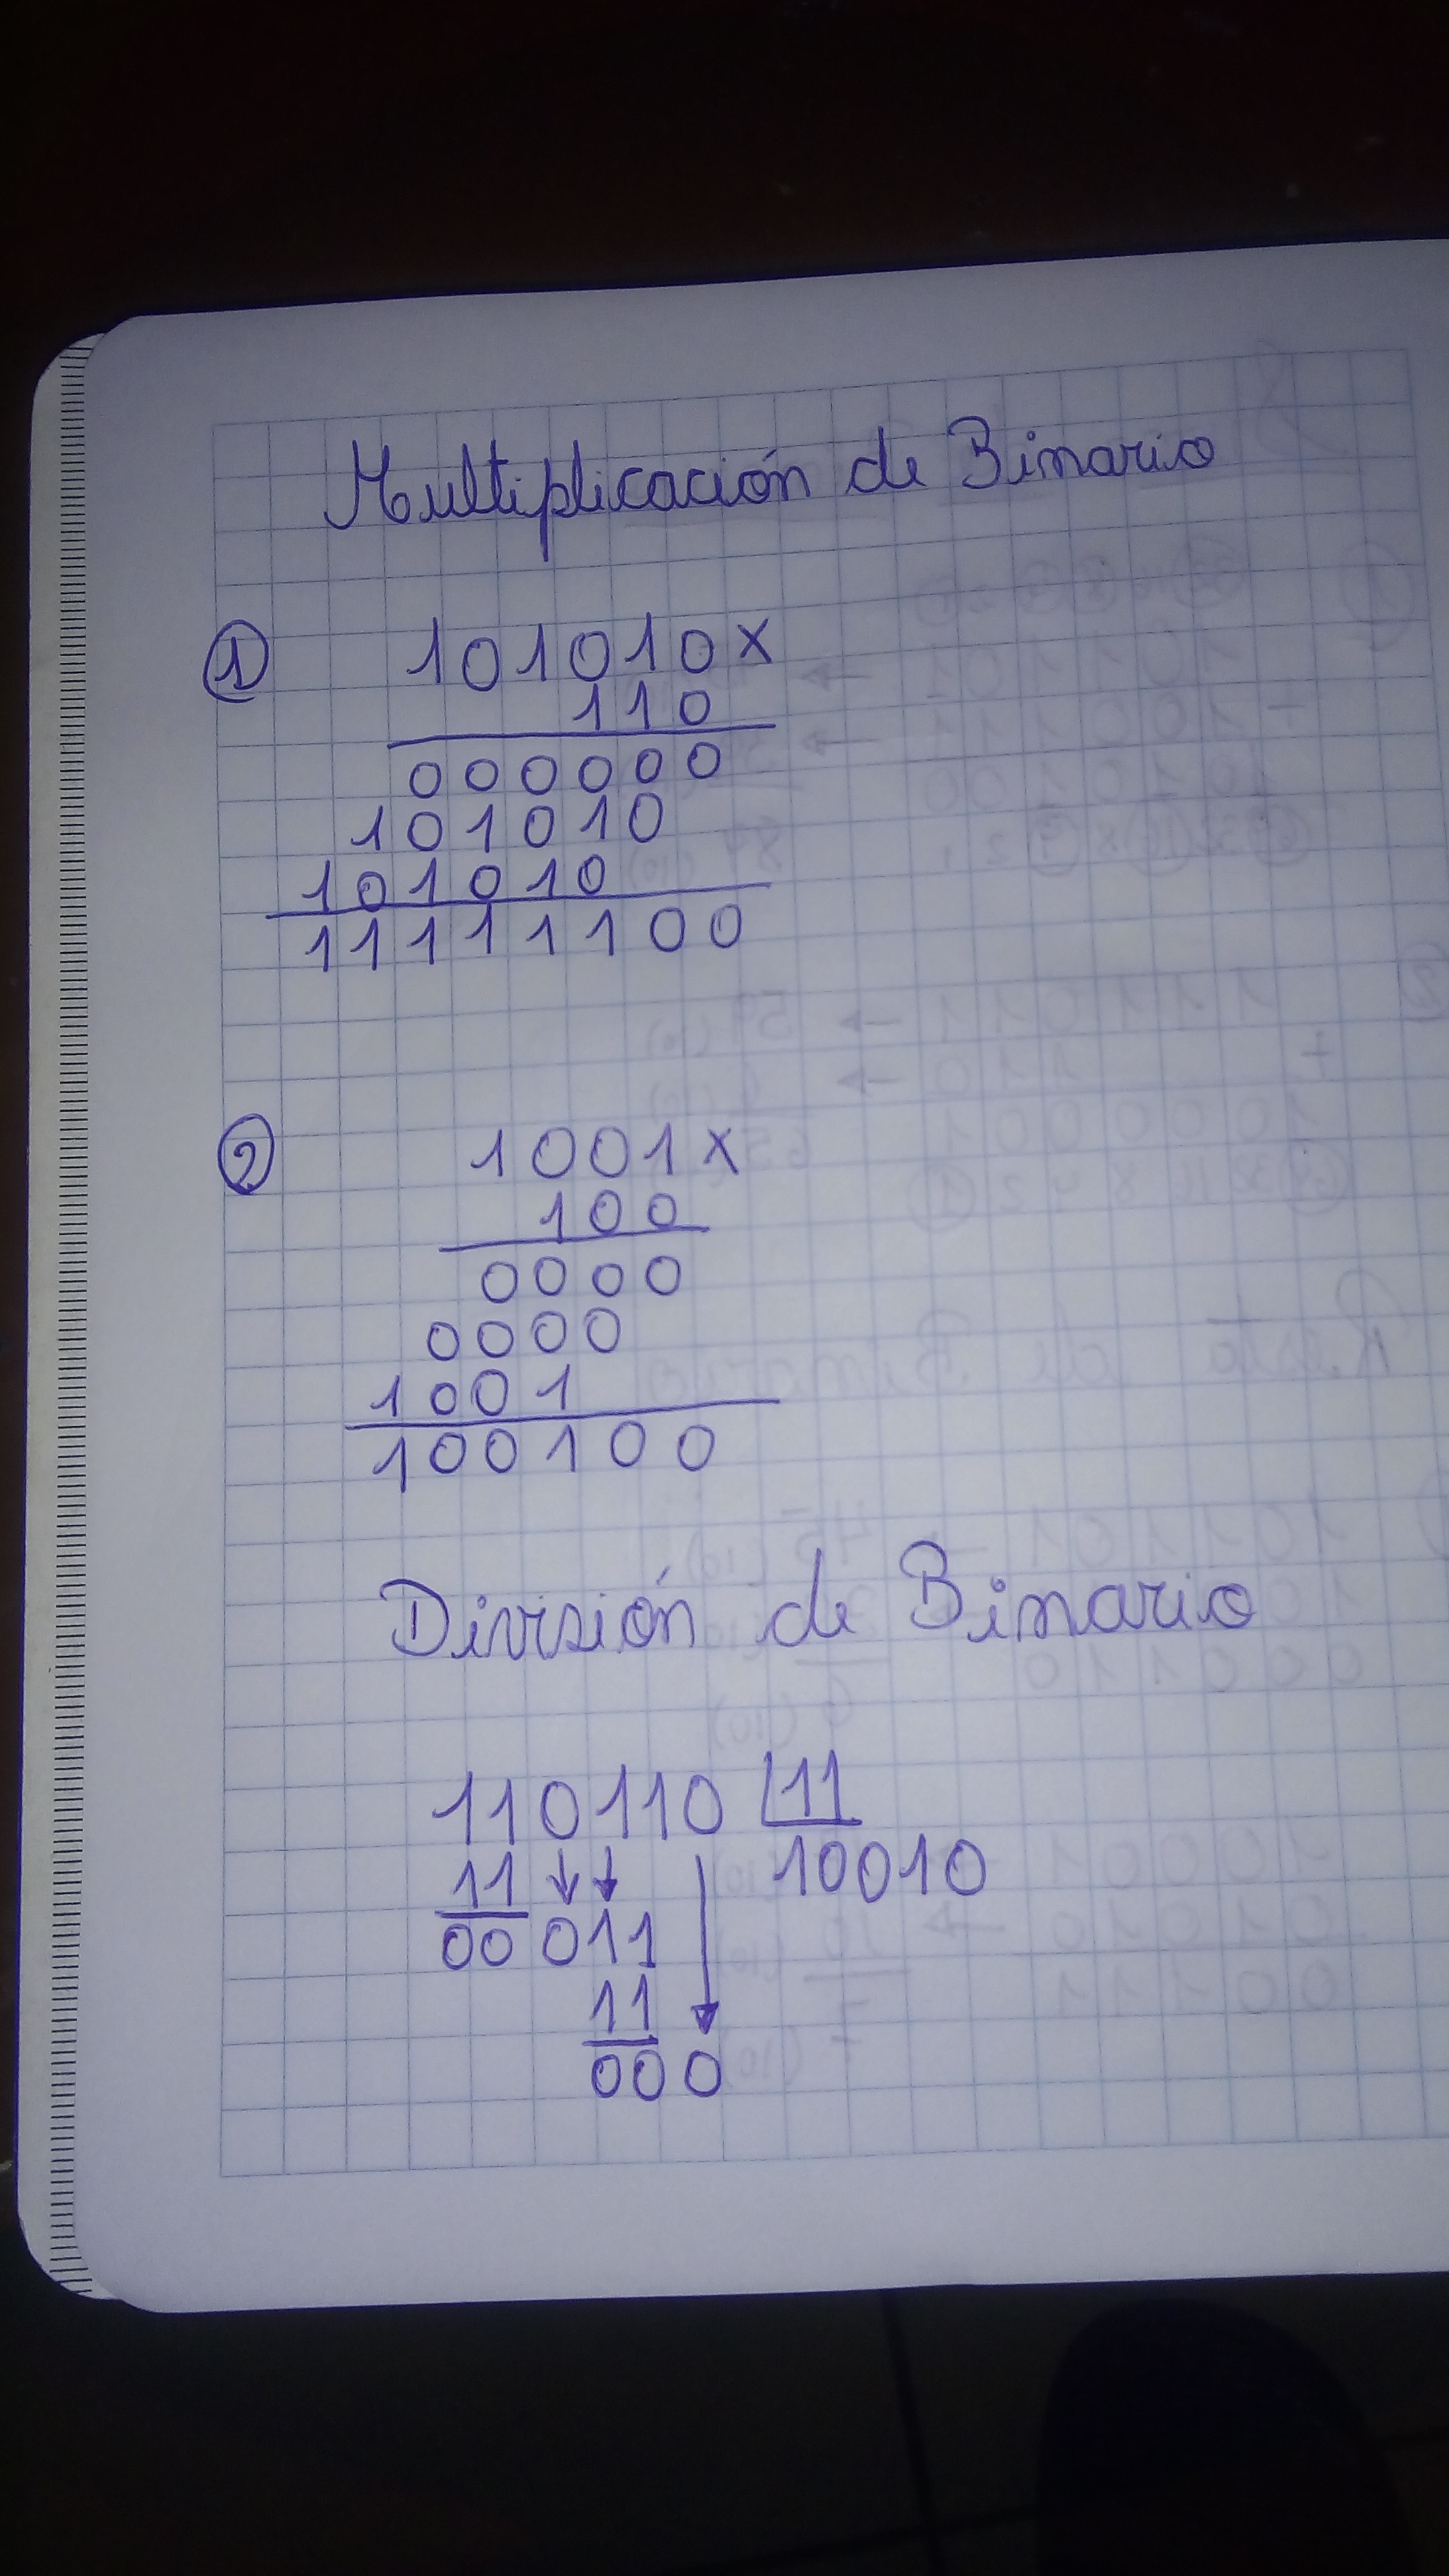 Multiplicación de Binario
① 101010 x
110
000000
101010
101010
11111100
② 1001 x
100
0000
0000
1001
100100
División de Binario
110110 11
11 10010
00 011
11
000